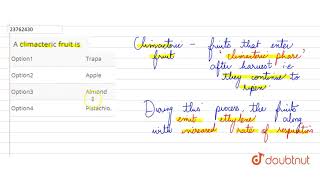 23762430
A climacteric fruit is
Option1 Trapa
Option2 Apple
Option3 Almond
Option4 Pistachio.
Climacteric – fruits that enter
fruit "climacteric phase"
after harvest i.e
they continue to
ripen.
During this process, the fruits
emit ethylene along
with increased rate of respiration
doubtnut